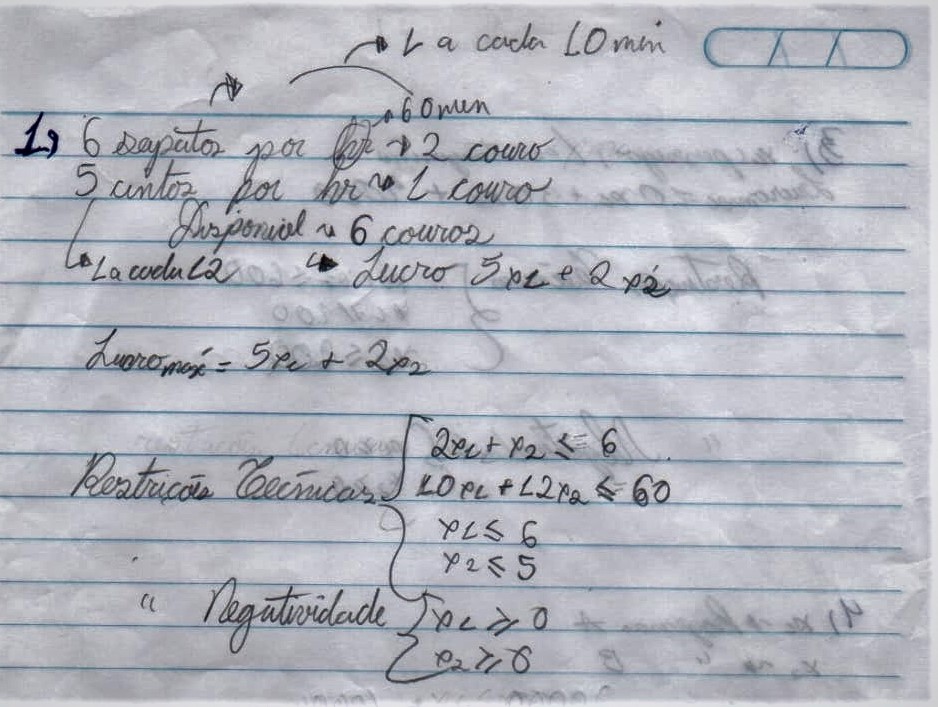 1 a cada 10 min
60 min
1) 6 sapatos por hr → 2 couro
5 cintos por hr → 1 couro
Disponível → 6 couros
1 a cada 12 → Lucro 5x1 e 2x2
Lucro máx = 5x1 + 2x2
2x1 + x2 ≤ 6
Restrições Técnicas 10x1 + 12x2 ≤ 60
x1 ≤ 6
x2 ≤ 5
" Negatividade x1 ≥ 0
x2 ≥ 0